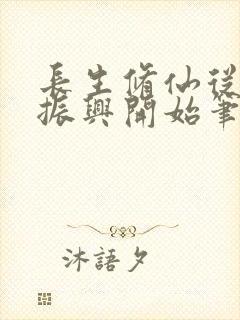 長生脩仙從
振興開始筆
沐語夕